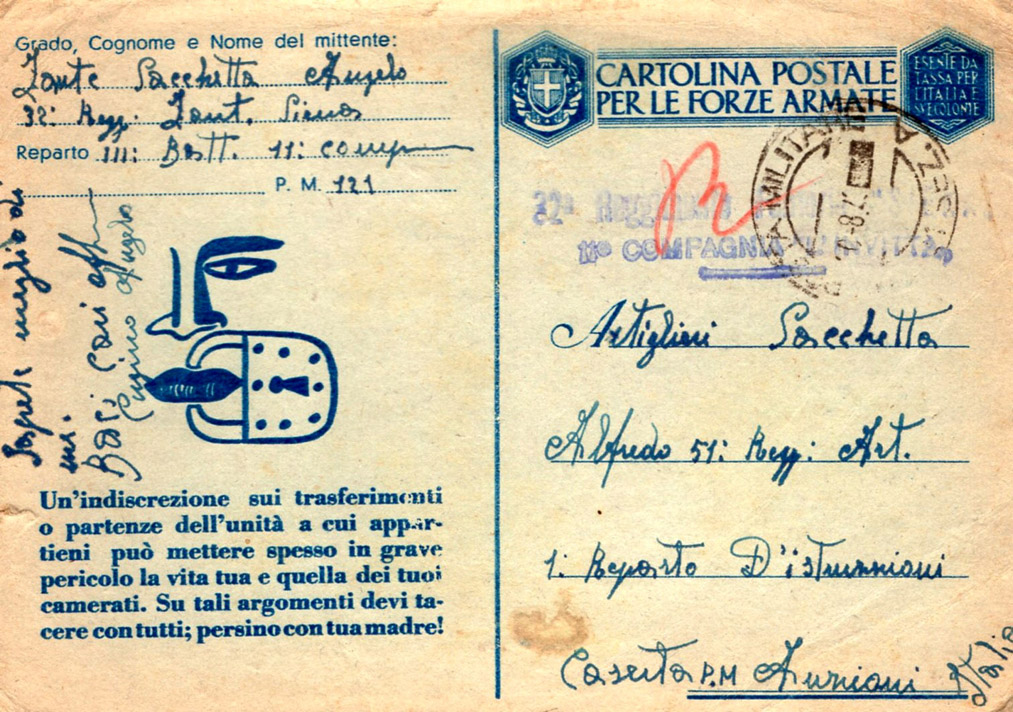 Grado, Cognome e Nome del mittente:
Fante Sacchetta Angelo
32: Regg. Fant. Siena
Reparto III: Batt. 11: comp
P. M. 121
Baci cari
Cugino Angelo
Un'indiscrezione sui trasferimenti
o partenze dell'unità a cui appar-
tieni può mettere spesso in grave
pericolo la vita tua e quella dei tuoi
camerati. Su tali argomenti devi ta-
cere con tutti; persino con tua madre!
CARTOLINA POSTALE
PER LE FORZE ARMATE
ESENTE DA
TASSA PER
L'ITALIA E
SUE COLONIE
32°
11° COMPAGNIA
POSTA MILITARE
Artiglieri Sacchetta
Alfredo 51: Regg: Art.
1: Reparto D'istruzzioni
Caserta P.M
Italia